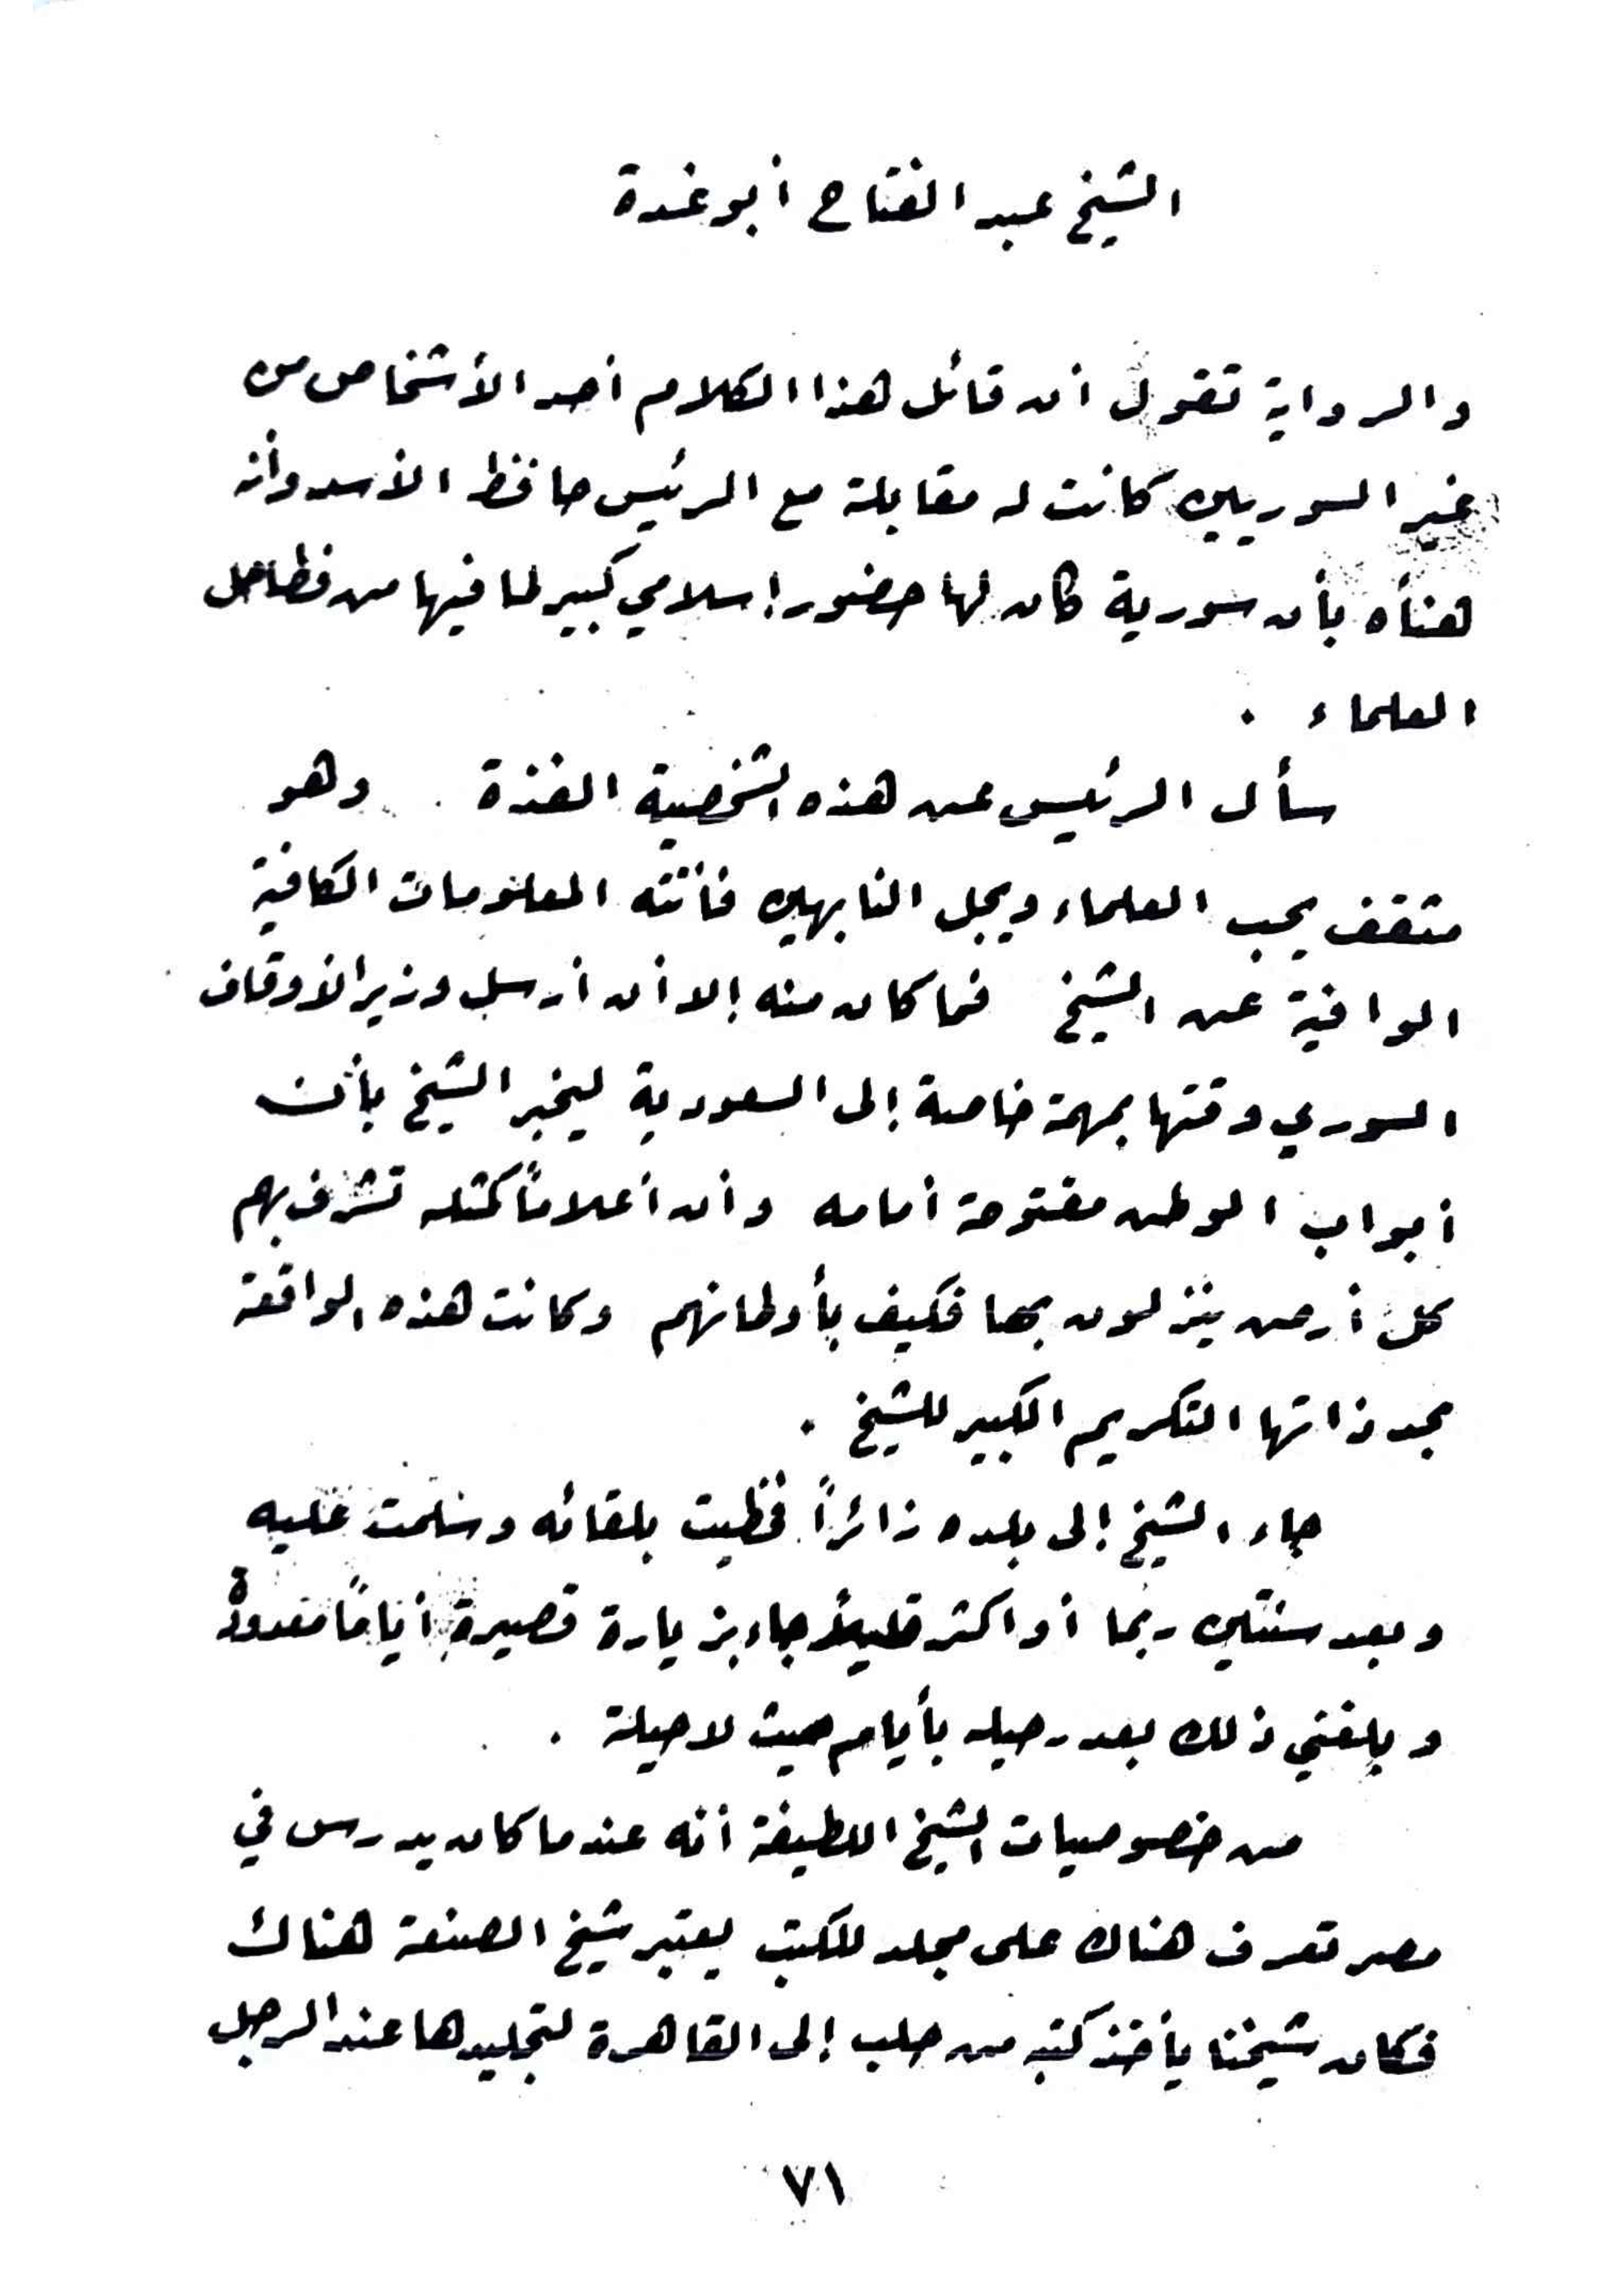 الشيخ عبد الفتاح أبو غدة
والرواية تقول أن قائل هذا الكلام أحد الأشخاص من
غير السوريين كانت له مقابلة مع الرئيس حافظ الأسد وأنه
هنأه بأن سورية كان لها حضور إسلامي كبير لما فيها من فطاحل
العلماء .
سأل الرئيس عن هذه الشخصية الفذة . وهو
مثقف يحب العلماء ويجل النابهين فأتته المعلومات الكافية
الوافية عن الشيخ فما كان منه إلا أن أرسل وزير الأوقاف
السوري وقتها بمهمة خاصة إلى السعودية ليخبر الشيخ بأن
أبواب الوطن مفتوحة أمامه وأن أعلاماً كمثله تشرف بهم
كل أرض ينزلون بها فكيف بأوطانهم وكانت هذه الواقعة
بحد ذاتها التكريم الكبير للشيخ .
جاء الشيخ إلى بلده زائراً فحظيت بلقائه وسلمت عليه
وبعد سنتين ربما أو اكثر قليلاً جاء بزيارة قصيرة أياماً معدودة
وبلغني ذلك بعد رحيله بأيام حيث لا حيلة .
من خصوصيات الشيخ اللطيفة أنه عندما كان يدرس في
مصر تعرف هناك على مجلد للكتب يعتبر شيخ الصنعة هناك
فكان شيخنا يأخذ كتبه من حلب إلى القاهرة لتجليدها عند الرجل
٧١